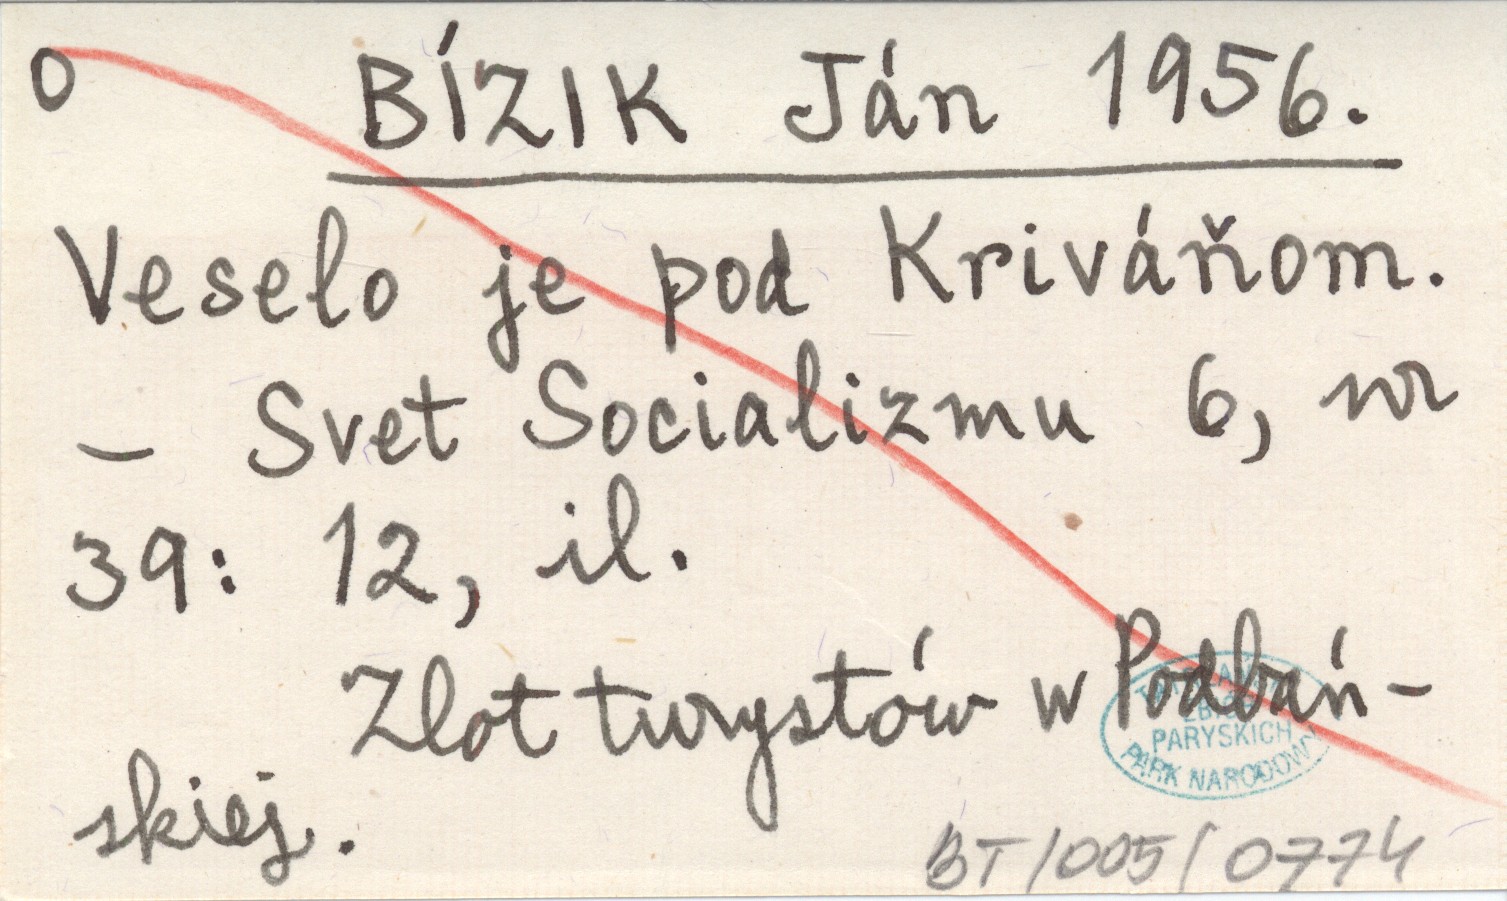 O BÍZIK Ján 1956.
Veselo je pod Kriváňom.
– Svet Socializmu 6, nr
39: 12, il.
Zlot turystów w Podbań-
skiej.
PARYSKICH
PARK NARODOWY
BT/005/0774